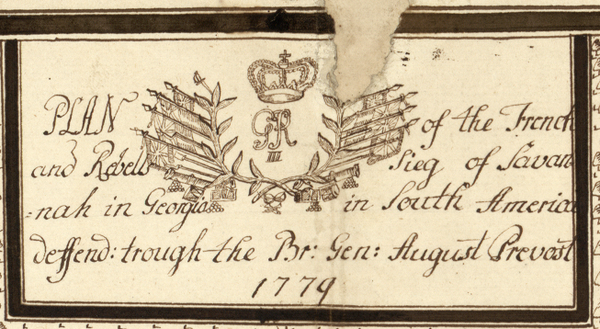 PLAN of the French
GR
III
and Rebells Sieg of Savan
=nah in Georgia in South America
deffend: trough the Br: Gen: August Prevost
1779